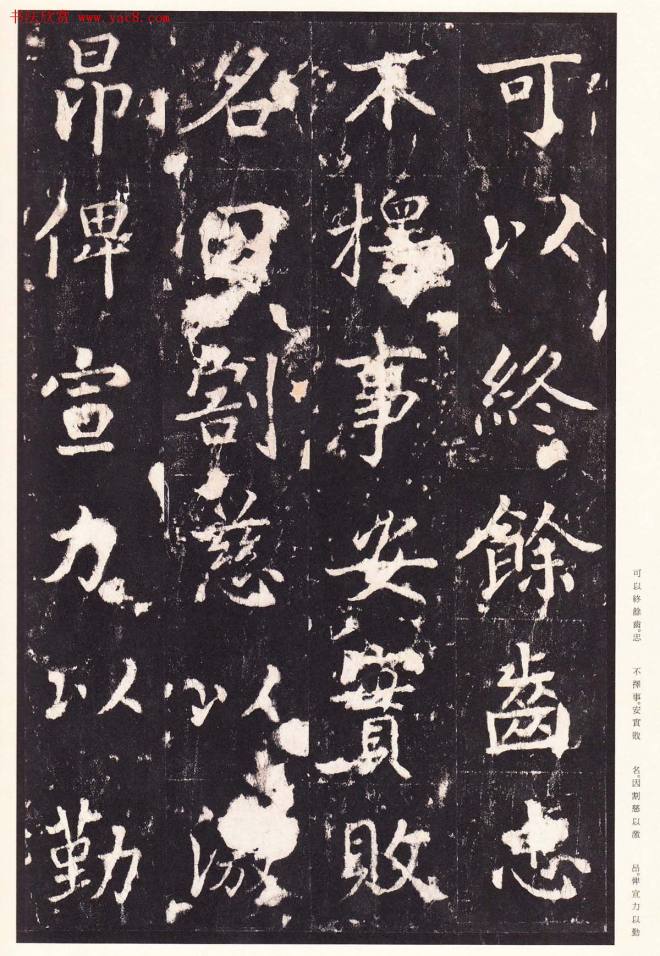 书法欣赏 www.yac8.com
可以終餘齒忠
不擇事安實敗
名因割慈以激
昂俾宣力以勤
可以終餘齒。忠
不擇事。安實敗
名。因割慈以激
昂。俾宣力以勤